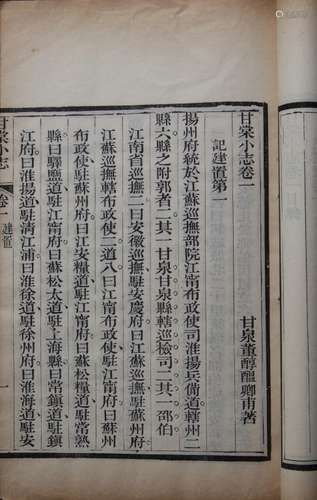 甘棠小志卷一
甘泉董醇醖卿甫著
記建置第一
揚州府統於江蘇巡撫部院江甯布政使司淮揚兵備道轄州二
縣六縣之附郭者二其一甘泉甘泉縣轄巡檢司二其一邵伯
江南省巡撫二曰安徽巡撫駐安慶府曰江蘇巡撫駐蘇州府
江蘇巡撫轄布政使二道八曰江甯布政使駐江甯府曰蘇州
布政使駐蘇州府曰江安糧道駐江甯府曰蘇松糧道駐常熟
縣曰驛鹽道駐江甯府曰蘇松太道駐上海縣曰常鎮道駐鎮
江府曰淮揚道駐清江浦曰淮徐道駐徐州府曰淮海道駐安
甘棠小志
卷一
建置
一